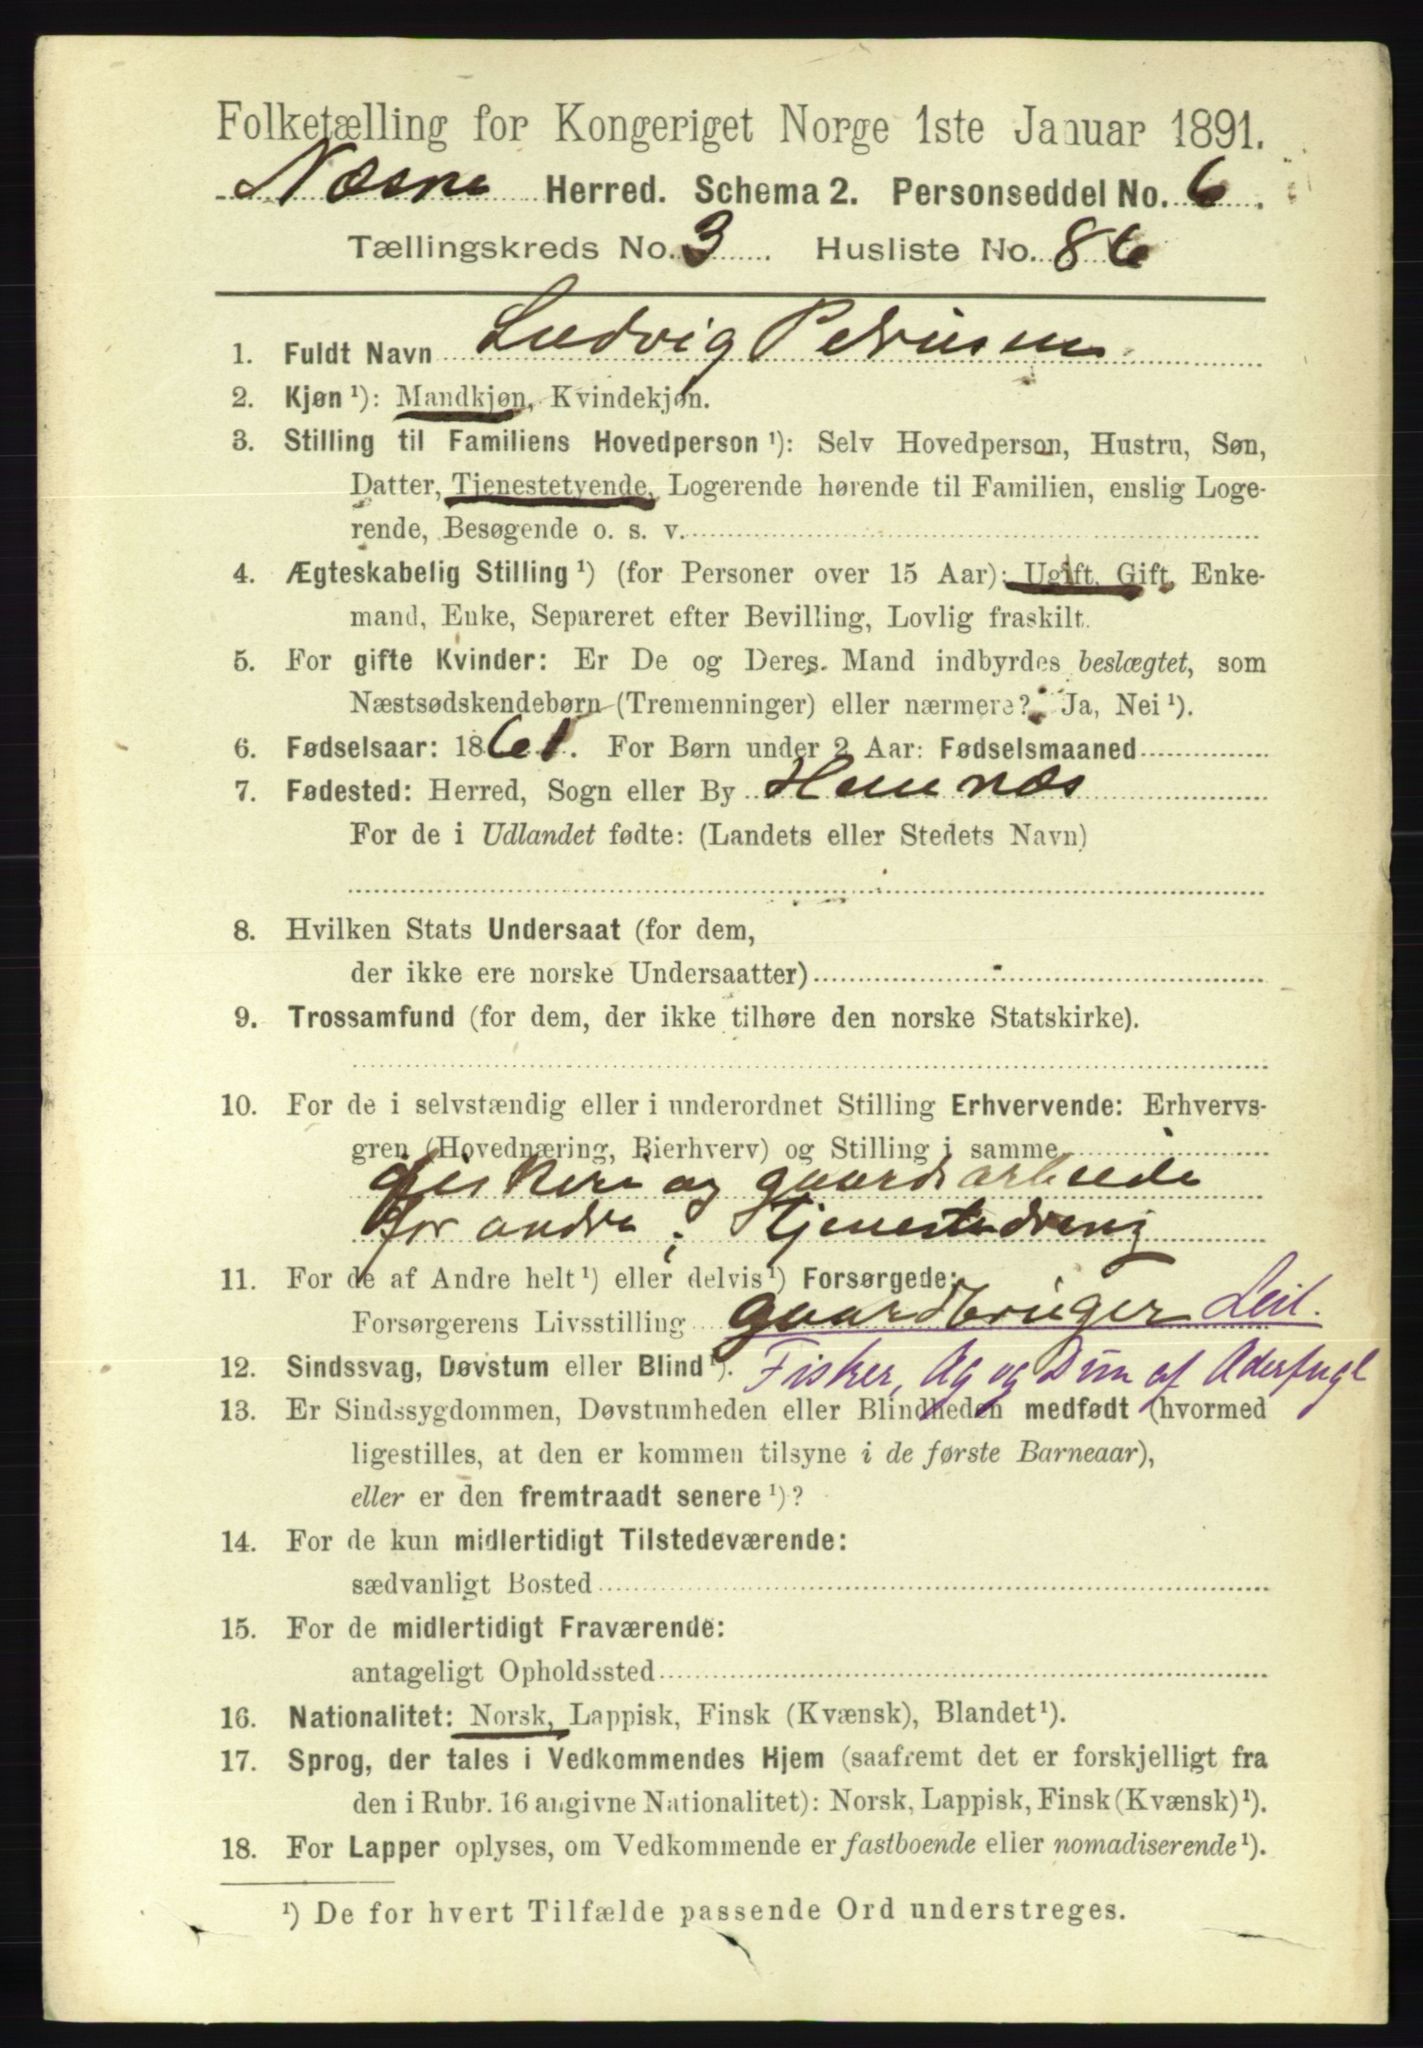 Folketælling for Kongeriget Norge 1ste Januar 1891.
Næsne Herred. Schema 2. Personseddel No. 6.
Tællingskreds No. 3. Husliste No. 86
1. Fuldt Navn Ludvig Petrusen
2. Kjøn ¹): Mandkjøn, Kvindekjøn.
3. Stilling til Familiens Hovedperson ¹): Selv Hovedperson, Hustru, Søn,
Datter, Tjenestetyende, Logerende hørende til Familien, enslig Loge-
rende, Besøgende o. s. v.
4. Ægteskabelig Stilling ¹) (for Personer over 15 Aar): Ugift, Gift, Enke-
mand, Enke, Separeret efter Bevilling, Lovlig fraskilt.
5. For gifte Kvinder: Er De og Deres Mand indbyrdes beslægtet, som
Næstsødskendebørn (Tremenninger) eller nærmere? Ja, Nei ¹).
6. Fødselsaar: 1861. For Børn under 2 Aar: Fødselsmaaned
7. Fødested: Herred, Sogn eller By Hemnæs
For de i Udlandet fødte: (Landets eller Stedets Navn)
8. Hvilken Stats Undersaat (for dem,
der ikke ere norske Undersaatter)
9. Trossamfund (for dem, der ikke tilhøre den norske Statskirke).
10. For de i selvstændig eller i underordnet Stilling Erhvervende: Erhvervs-
gren (Hovednæring, Bierhverv) og Stilling i samme
fiskeri og gaardsarbeide
for andre; Tjenestedreng
11. For de af Andre helt ¹) eller delvis ¹) Forsørgede:
Forsørgerens Livsstilling gaardbruger Leil.
12. Sindssvag, Døvstum eller Blind ¹). Fisker, Æg og Dun af Æderfugl
13. Er Sindssygdommen, Døvstumheden eller Blindheden medfødt (hvormed
ligestilles, at den er kommen tilsyne i de første Barneaar),
eller er den fremtraadt senere ¹)?
14. For de kun midlertidigt Tilstedeværende:
sædvanligt Bosted
15. For de midlertidigt Fraværende:
antageligt Opholdssted
16. Nationalitet: Norsk, Lappisk, Finsk (Kvænsk), Blandet ¹).
17. Sprog, der tales i Vedkommendes Hjem (saafremt det er forskjelligt fra
den i Rubr. 16 angivne Nationalitet): Norsk, Lappisk, Finsk (Kvænsk) ¹).
18. For Lapper oplyses, om Vedkommende er fastboende eller nomadiserende ¹).
¹) De for hvert Tilfælde passende Ord understreges.